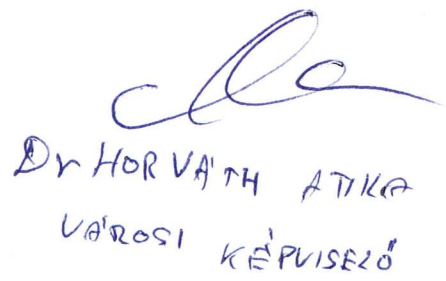 Dr HORVÁTH ATIKA
VÁROSI KÉPVISELŐ